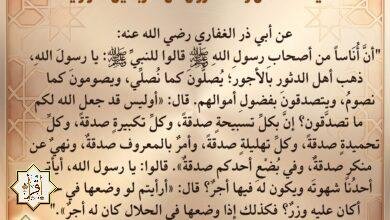 عن أبي ذر الغفاري رضي الله عنه:
"أنَّ أُناساً من أصحاب رسول الله ﷺ قالوا للنبيِّ ﷺ: يا رسولَ اللهِ،
ذهب أهل الدثور بالأجور؛ يُصلُّونَ كما نُصلِّي، ويصومونَ كما
نصومُ، ويتصدقونَ بفضول أموالهم. قال: «أوليس قد جعل الله لكم
ما تصدَّقون؟ إنَّ بكلِّ تسبيحة صدقةً، وكلِّ تكبيرةٍ صدقةً، وكلِّ
تحميدةٍ صدقةً، وكلِّ تهليلةٍ صدقةً، وأمرٌ بالمعروف صدقةٌ، ونهيٌ عن
منكر صدقةٌ، وفي بُضْع أحدكم صدقةٌ». قالوا: يا رسول الله، أيأتي
أحدُنا شهوتَه ويكون له فيها أجرٌ؟ قال: «أرأيتم لو وضعها في
أكان عليه وزرٌ؟ فكذلك إذا وضعها في الحلال كان له أجرٌ».